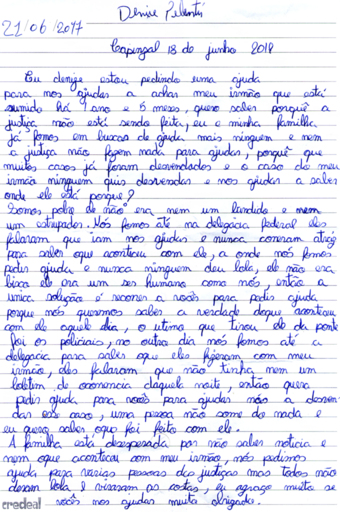 Denize Pelentú
21/06/2017
Capinzal 18 de junho 2018
Eu denize estou pedindo uma ajuda
para nos ajudar a achar meu irmão que está
sumido há 1 ano e 5 meses, quero saber porquê a
justiça não está sendo feita, eu e minha família
já fomos em buscas de ajuda mais ninguem e nem
a justiça não fazem nada para ajudar, porquê que
muitos casos já foram desvendados e o caso de meu
irmão ninguem quis desvendar e nos ajudar a saber
onde ele está porque?
Somos pobre ele não era nem um bandido e nem
um estrupador. Nós fomos até na delegacia federal eles
falaram que iam nos ajudar e nunca correram atráz
para saber oque aconteceu com ele, a onde nós fomos
pedir ajuda e nunca ninguem deu bola, ele não era
bixo ele era um ser humano como nós, então a
unica solução é recorrer a vocês para pedir ajuda
porque nós queremos saber a verdade doque aconteceu
com ele aquele dia, o utimo que tirou ele da ponte
foi os policiais, no outro dia nós fomos até a
delegacia para saber oque eles fizeram com meu
irmão, eles falaram que não tinha nem um
boletim de ocorencia daquela noite, então quero
pedir ajuda para vocês para ajudar nós a desven
dar esse caso, uma pessoa não some do nada e
eu quero saber oque foi feito com ele.
A família está desesperada por não saber noticia e
nem oque aconteceu com meu irmão, nós pedimos
ajuda para varias pessoas das justiças mas todos não
deram bola e viraram as costas, eu agraço muito se
vocês nos ajudar muito obrigado.
credeal